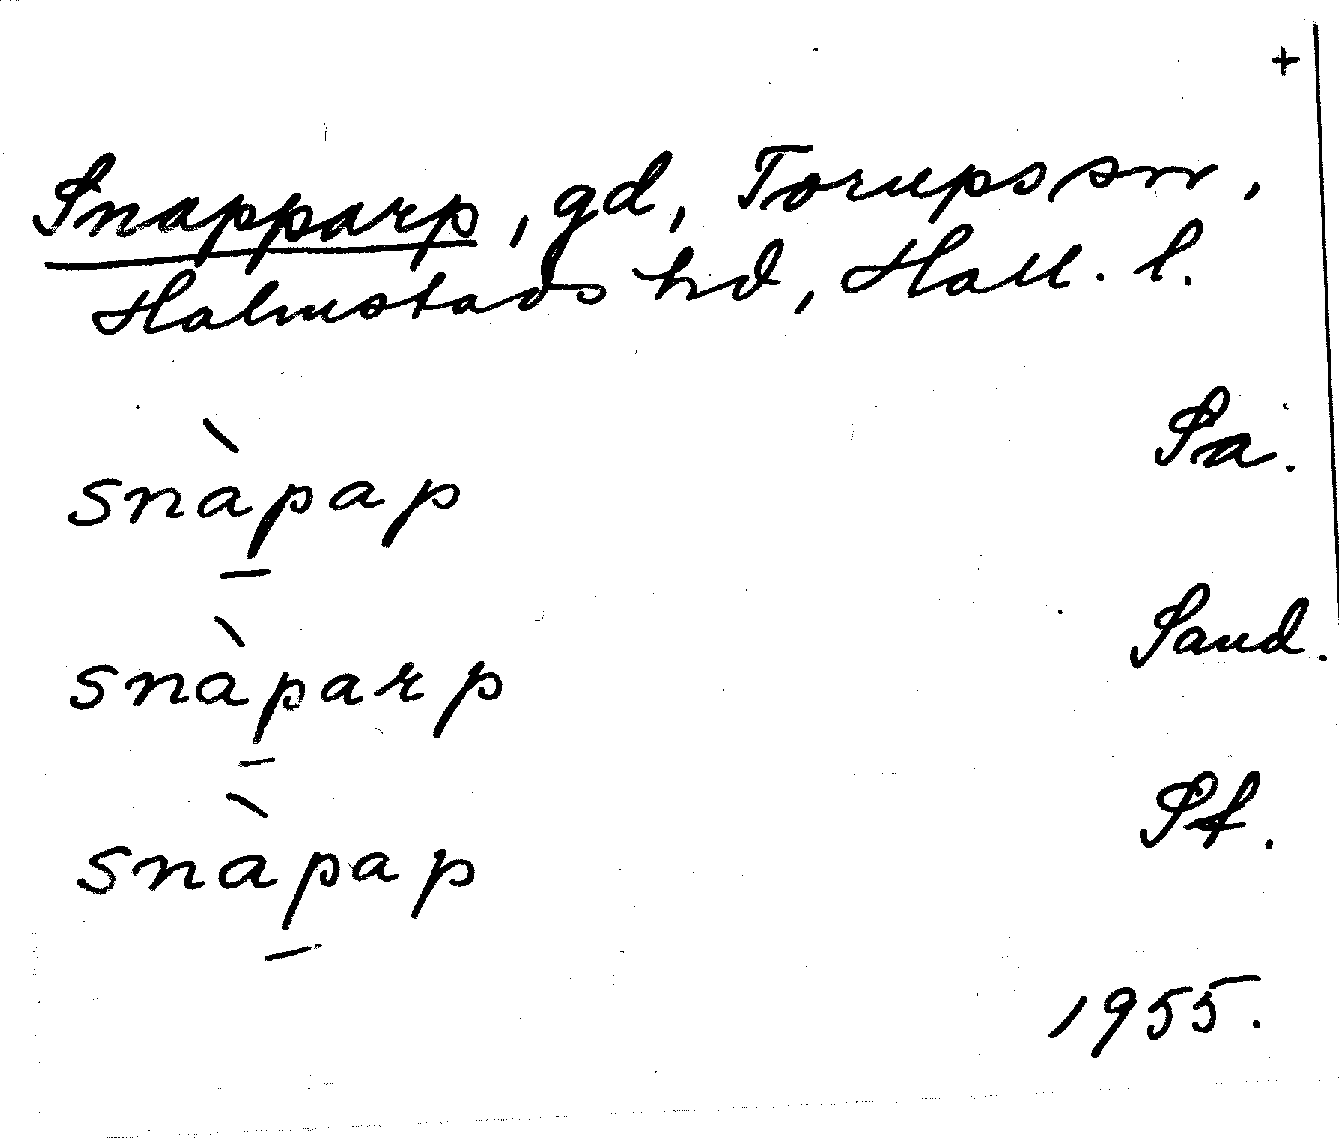 +
Snapparp, gd, Torups sn,
Halmstads hd, Hall. l.
snàp̱ap Sa.
snàp̱arp Sand.
snàp̱ap Sf.
1955.